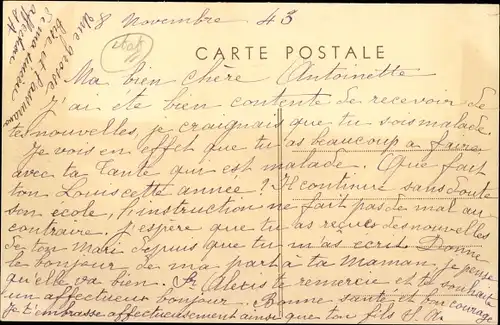 8 Novembre 43
CARTE POSTALE
Ma bien chère Antoinette
J'ai été bien contente de recevoir de
tes nouvelles, je craignais que tu sois malade
Je vois en effet que tu as beaucoup a faire
avec ta Tante qui est malade. Que fait
ton Louis cette annee? Il continue sans doute
son école, l'instruction ne fait pas de mal au
contraire. J'espère que tu as reçu des nouvelles
de ton Mari depuis que tu m'as ecrit Donne
le bonjour de ma part à ta Maman, je pense
qu'elle va bien. Sr Alexis te remercie et te souhait
un affectueux bonjour. Bonne santé et bon courage
je t'embrasse affectueusement ainsi que ton fils S. A
Une grosse
bise et l'assurance
de ma
affection